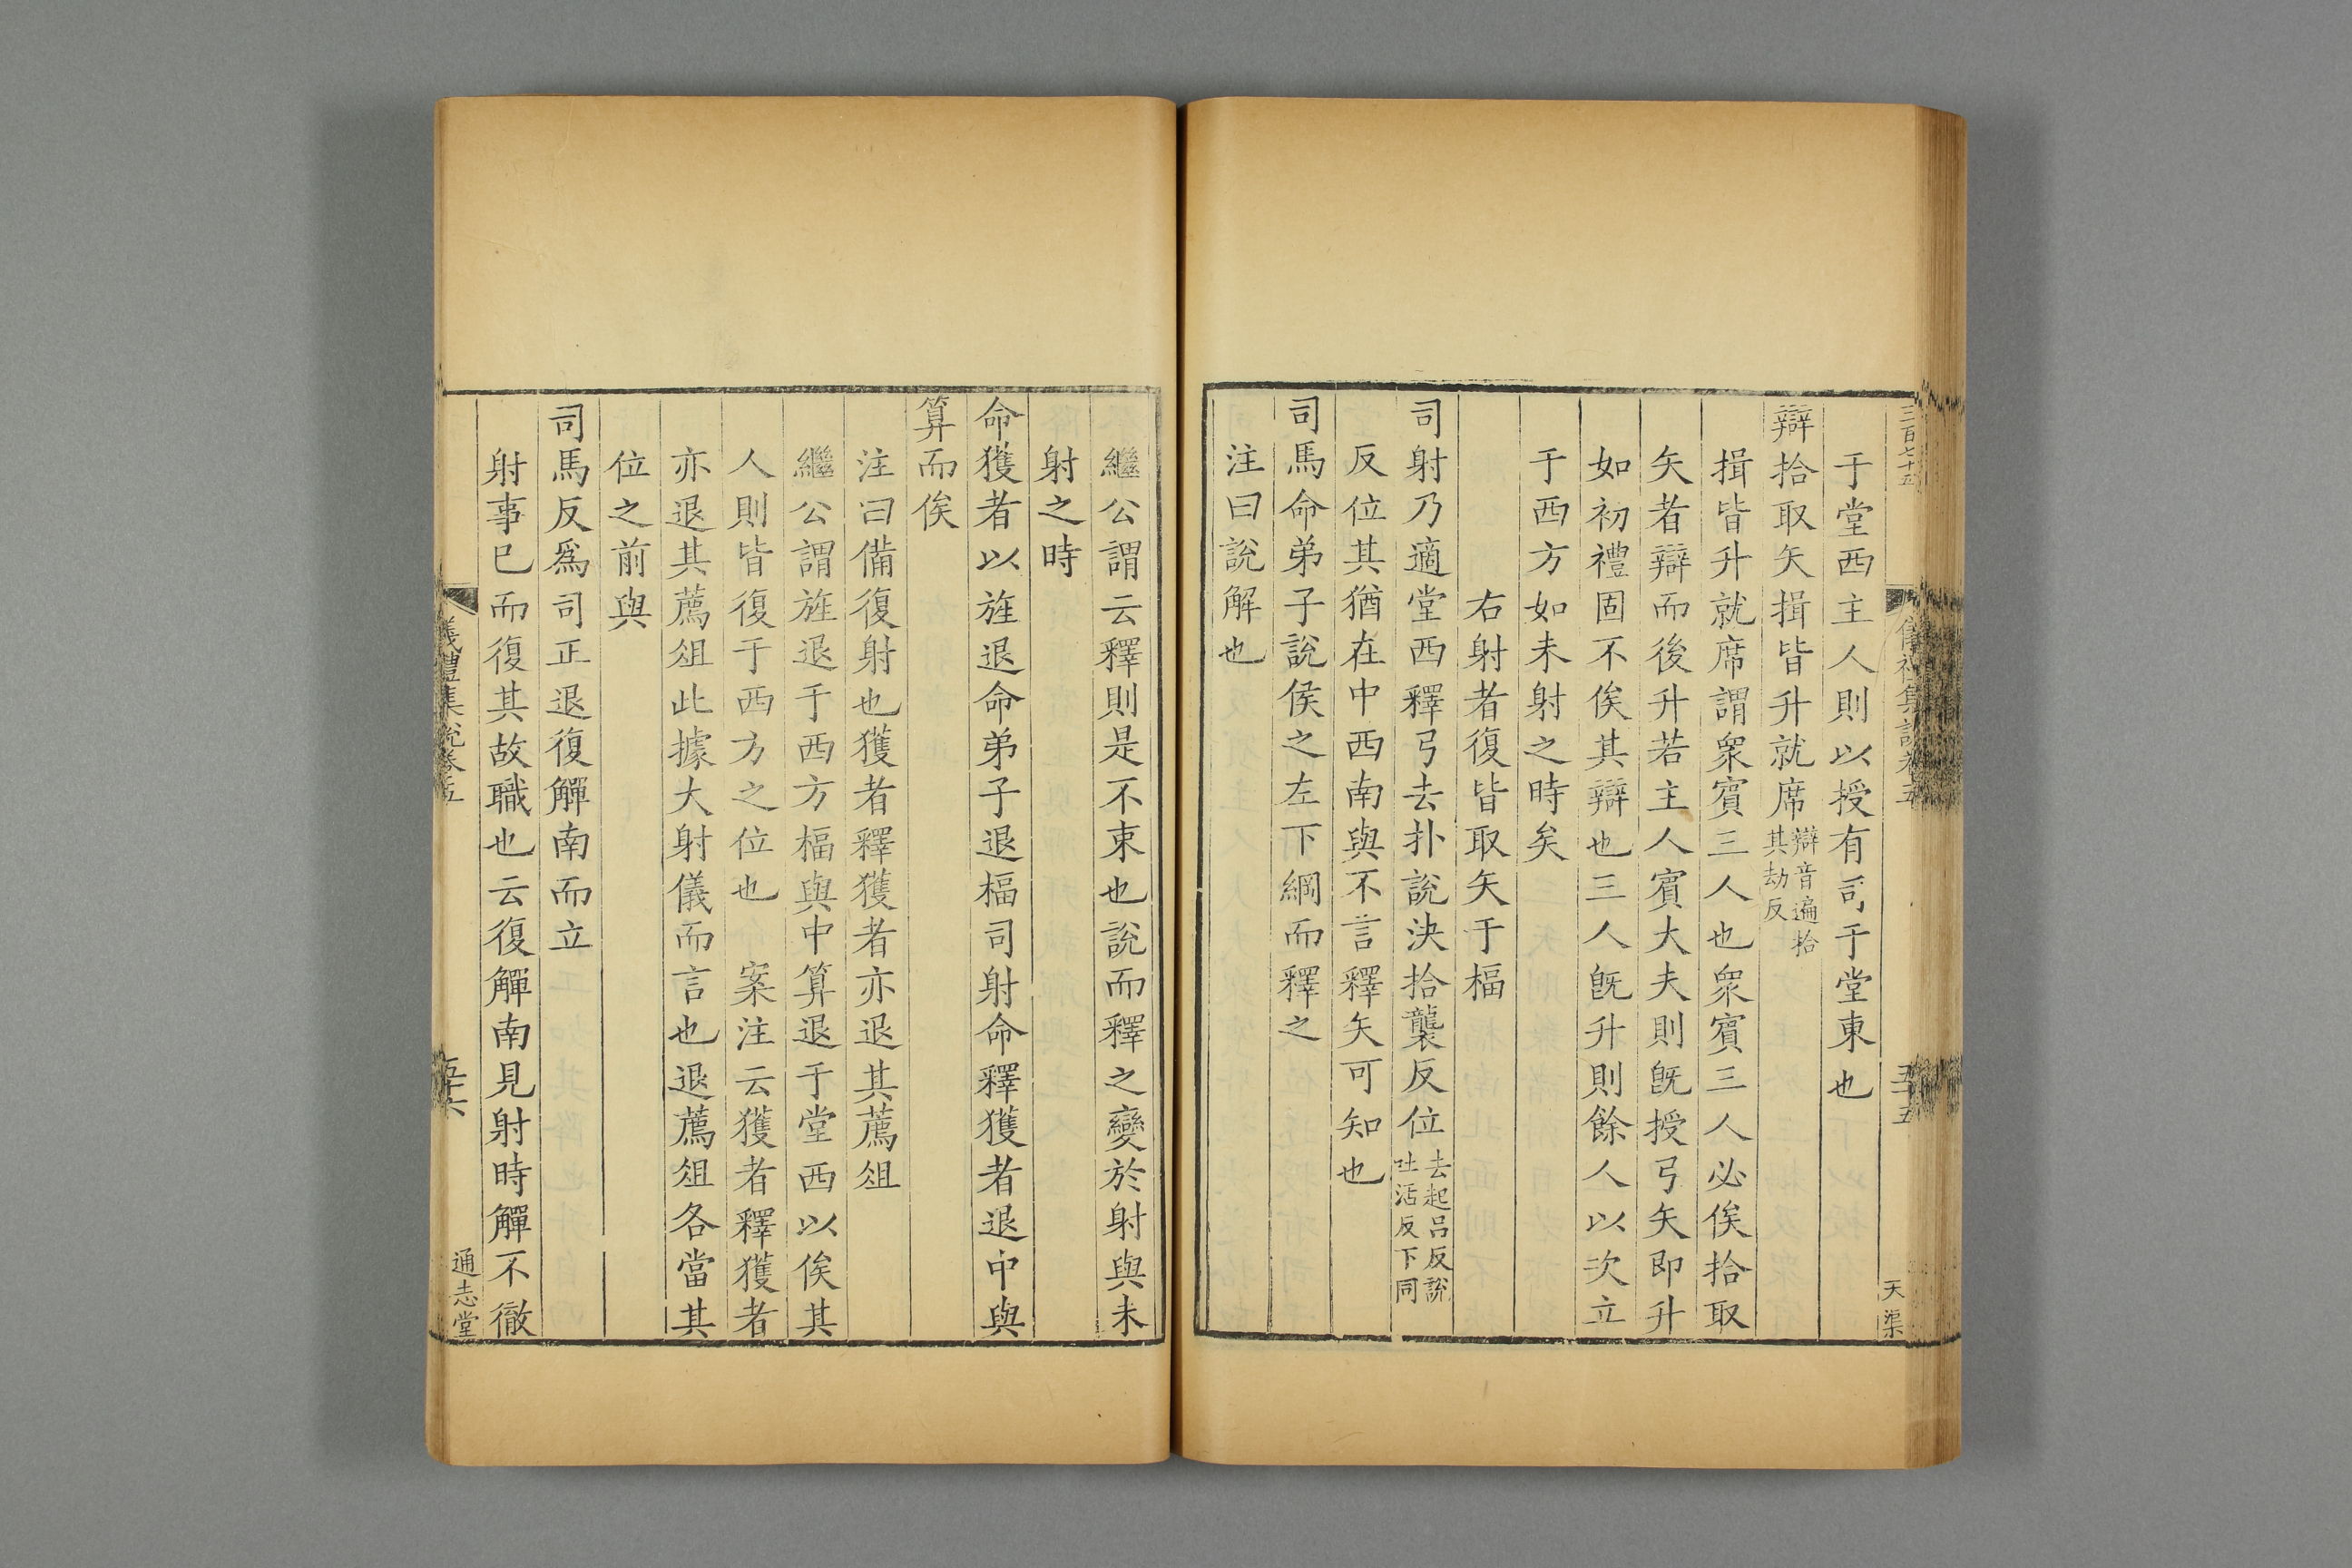 三百七十五
儀禮集說卷五
五十五
天渠
于堂西主人則以授有司于堂東也
辯拾取矢揖皆升就席辯音遍拾其劫反
揖皆升就席謂衆賓三人也衆賓三人必俟拾取
矢者辯而後升若主人賓大夫則旣授弓矢即升
如初禮固不俟其辯也三人旣升則餘人以次立
于西方如未射之時矣
右射者復皆取矢于楅
司射乃適堂西釋弓去扑說決拾襲反位去起呂反說吐活反下同
反位其猶在中西南與不言釋矢可知也
司馬命弟子說侯之左下綱而釋之
注曰說解也
繼公謂云釋則是不束也說而釋之變於射與未
射之時
命獲者以旌退命弟子退楅司射命釋獲者退中與
算而俟
注曰備復射也獲者釋獲者亦退其薦俎
繼公謂旌退于西方楅與中算退于堂西以俟其
人則皆復于西方之位也 案注云獲者釋獲者
亦退其薦俎此據大射儀而言也退薦俎各當其
位之前與
司馬反爲司正退復觶南而立
射事已而復其故職也云復觶南見射時觶不徹
儀禮集說卷五
五十六
通志堂